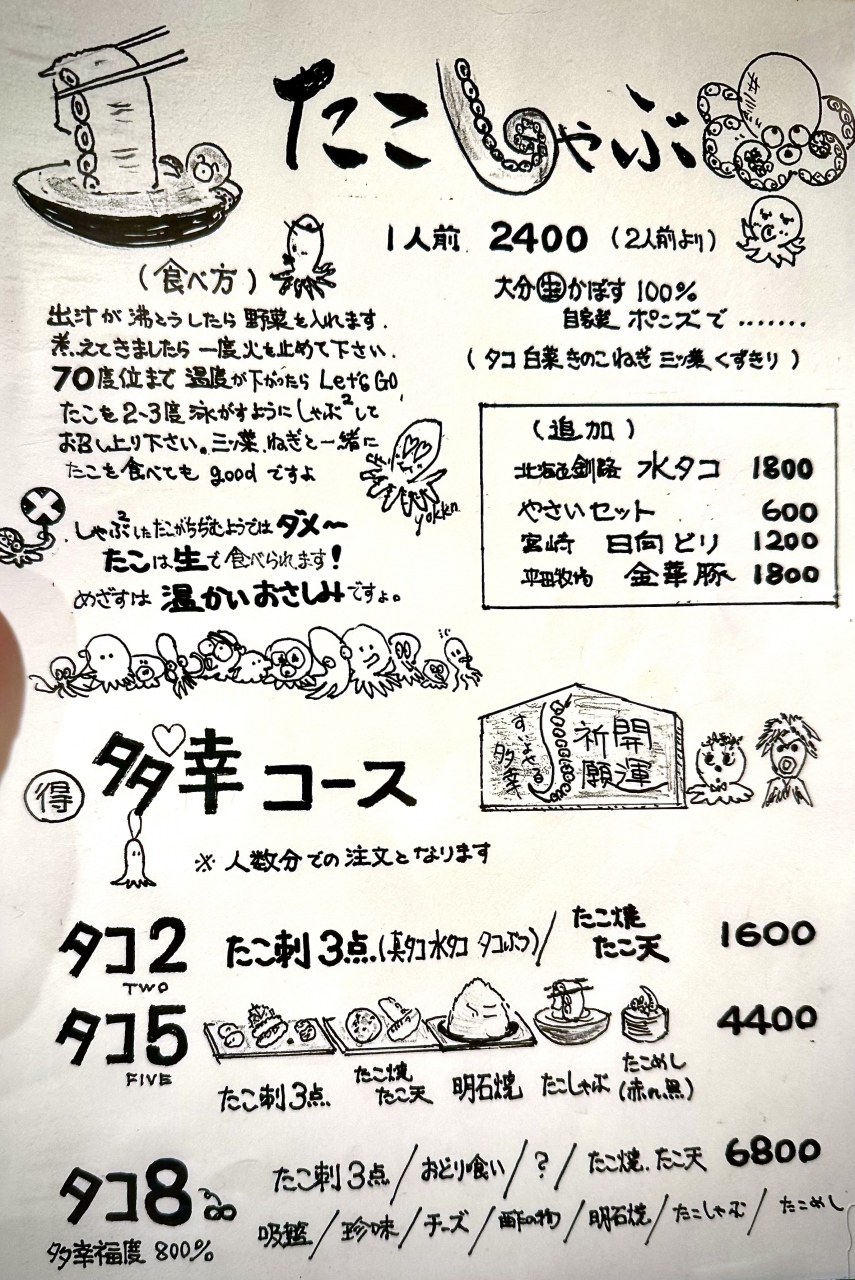 たこしゃぶ
1人前 2400 (2人前より)
大分㊤かぼす 100%
自家製 ポン酢で .......
(タコ 白菜 きのこ ねぎ 三ッ葉 くずきり)
(食べ方)
出汁が 沸とうしたら 野菜を入れます.
煮えてきましたら 一度火を止めて下さい.
70度位まで 温度が下がったら Let's GO
たこを 2~3度 泳がすように しゃぶ²して
お召し上り下さい。三ッ葉、ねぎと一緒に
たこを食べても good ですよ
yokkn
しゃぶ²したたこがちぢむようでは ダメ〜
たこは 生で食べられます!
めざすは 温かいおさしみですょ。
(追加)
北海道釧路 水タコ 1800
やさいセット 600
宮崎 日向どり 1200
平田牧場 金華豚 1800
開運
祈願
多幸
得 多幸コース
※ 人数分での注文となります
タコ2 たこ刺 3点(真タコ 水タコ タコぶつ)/たこ焼 たこ天 1600
TWO
タコ5 4400
FIVE
たこ刺3点 たこ焼 たこ天 明石焼 たこしゃぶ たこめし(赤or黒)
タコ8 たこ刺 3点/おどり喰い/?/たこ焼、たこ天 6800
吸盤/珍味/チーズ/酢の物/明石焼/たこしゃぶ/たこめし
多幸福度 800%